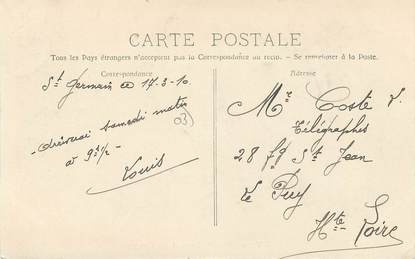 CARTE POSTALE
Tous les Pays étrangers n'acceptent pas la Correspondance au recto. - Se renseigner à la Poste.
Correspondance
Adresse
St Germain a 17-3-10
- Arriverai samedi matin
a 9h ½ -
Louis
03
Mr Coste
Télégraphes
28 fg St Jean
Le Puy
Hte Loire